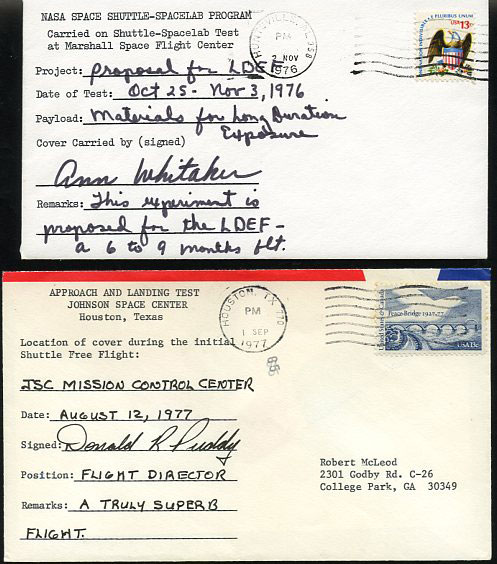 NASA SPACE SHUTTLE-SPACELAB PROGRAM
Carried on Shuttle-Spacelab Test
at Marshall Space Flight Center
PM
2 NOV
1976
E PLURIBUS UNUM
USA 13c
Project: Proposal for LDEF
Date of Test: Oct 25 - Nov 3, 1976
Payload: Materials for Long Duration
Exposure
Cover Carried by (signed)
Ann Whitaker
Remarks: This experiment is
proposed for the LDEF -
a 6 to 9 months flt.
APPROACH AND LANDING TEST
JOHNSON SPACE CENTER
Houston, Texas
HOUSTON, TX 770
PM
1 SEP
1977
Peace Bridge 1927-77
USA 13c
Location of cover during the initial
Shuttle Free Flight:
JSC MISSION CONTROL CENTER
Date: AUGUST 12, 1977
Signed: Donald R Puddy
Position: FLIGHT DIRECTOR
Remarks: A TRULY SUPERB
FLIGHT.
Robert McLeod
2301 Godby Rd. C-26
College Park, GA 30349